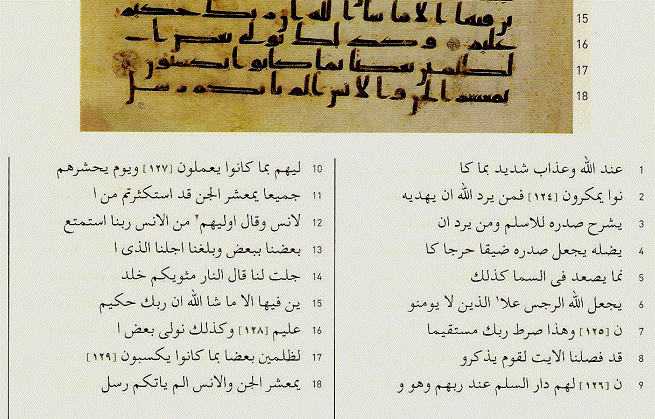 ين فيها الا ما شا الله ان ربك حكيم 15
عليم وكذلك نولى بعض ا 16
لظلمين بعضا بما كانوا يكسبون 17
يمعشر الجن والانس الم ياتكم رسل 18
1 عند الله وعذاب شديد بما كا
2 نوا يمكرون [١٢٤] فمن يرد الله ان يهديه
3 يشرح صدره للاسلم ومن يرد ان
4 يضله يجعل صدره ضيقا حرجا كا
5 نما يصعد فى السما كذلك
6 يجعل الله الرجس علا¹ الذين لا يومنو
7 ن [١٢٥] وهذا صرط ربك مستقيما
8 قد فصلنا الايت لقوم يذكرو
9 ن [١٢٦] لهم دار السلم عند ربهم وهو و
10 ليهم بما كانوا يعملون [١٢٧] ويوم يحشرهم
11 جميعا يمعشر الجن قد استكثرتم من ا
12 لانس وقال اوليهم² من الانس ربنا استمتع
13 بعضنا ببعض وبلغنا اجلنا الذى ا
14 جلت لنا قال النار مثويكم خلد
15 ين فيها الا ما شا الله ان ربك حكيم
16 عليم [١٢٨] وكذلك نولى بعض ا
17 لظلمين بعضا بما كانوا يكسبون [١٢٩]
18 يمعشر الجن والانس الم ياتكم رسل